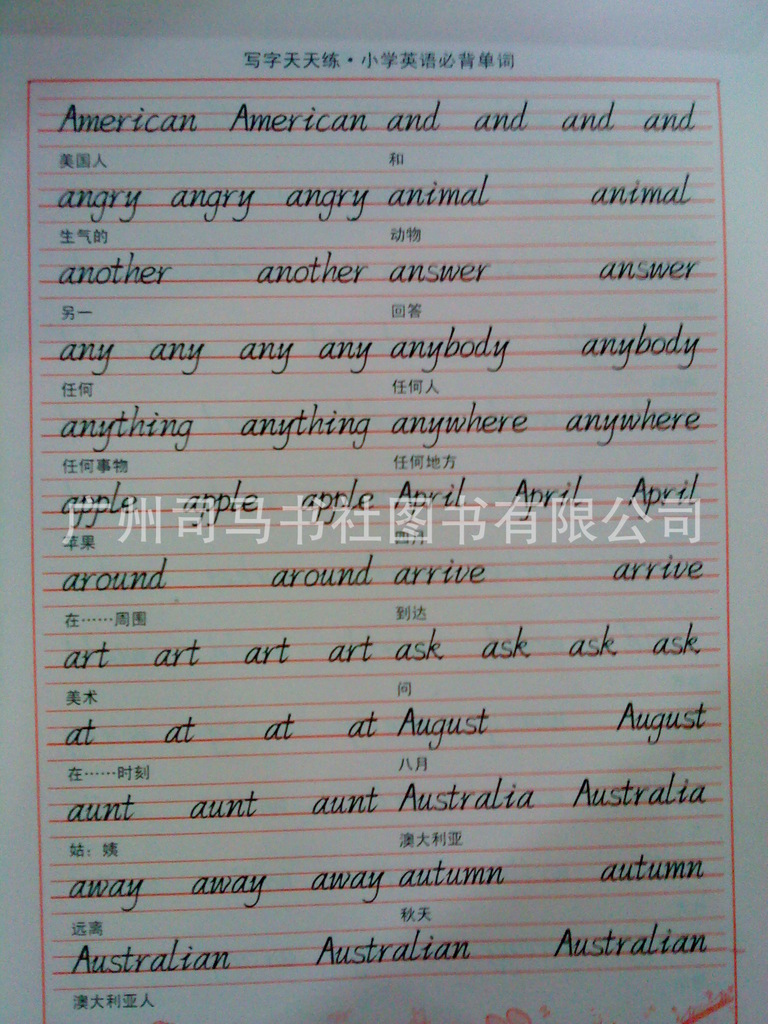 写字天天练·小学英语必背单词
American American and and and and
美国人 和
angry angry angry animal animal
生气的 动物
another another answer answer
另一 回答
any any any any anybody anybody
任何 任何人
anything anything anywhere anywhere
任何事物 任何地方
apple apple apple April April April
广州司马书社图书有限公司
苹果 四月
around around arrive arrive
在……周围 到达
art art art art ask ask ask ask
美术 问
at at at at August August
在……时刻 八月
aunt aunt aunt Australia Australia
姑；姨 澳大利亚
away away away autumn autumn
远离 秋天
Australian Australian Australian
澳大利亚人